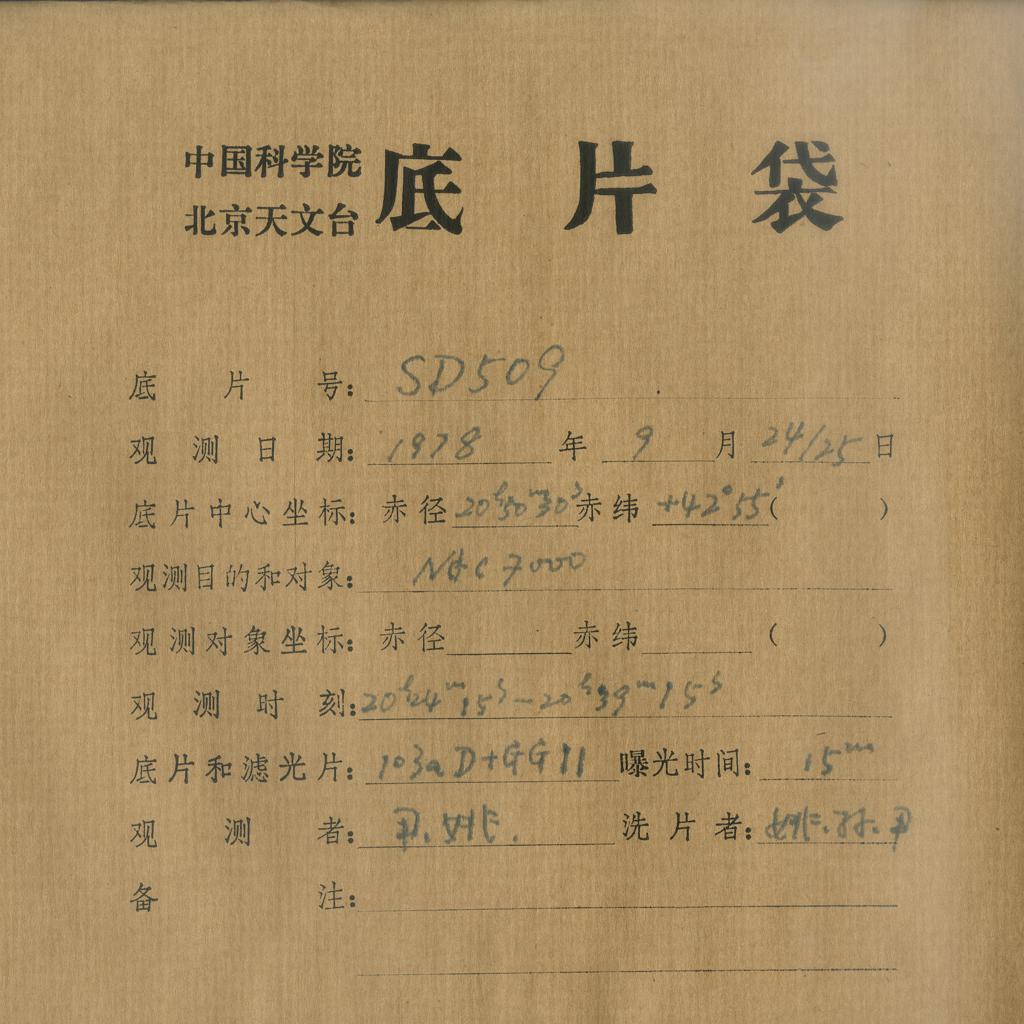 中国科学院
北京天文台
底片袋
底片号：SD509
观测日期：1978年9月24/25日
底片中心坐标：赤径20h50m30s赤纬+42°55′（ ）
观测目的和对象：NGC7000
观测对象坐标：赤径 赤纬 （ ）
观测时刻：20h24m15s—20h39m15s
底片和滤光片：103aD+GG11 曝光时间：15m
观测者：尹.姚. 洗片者：姚.孙.尹
备注：